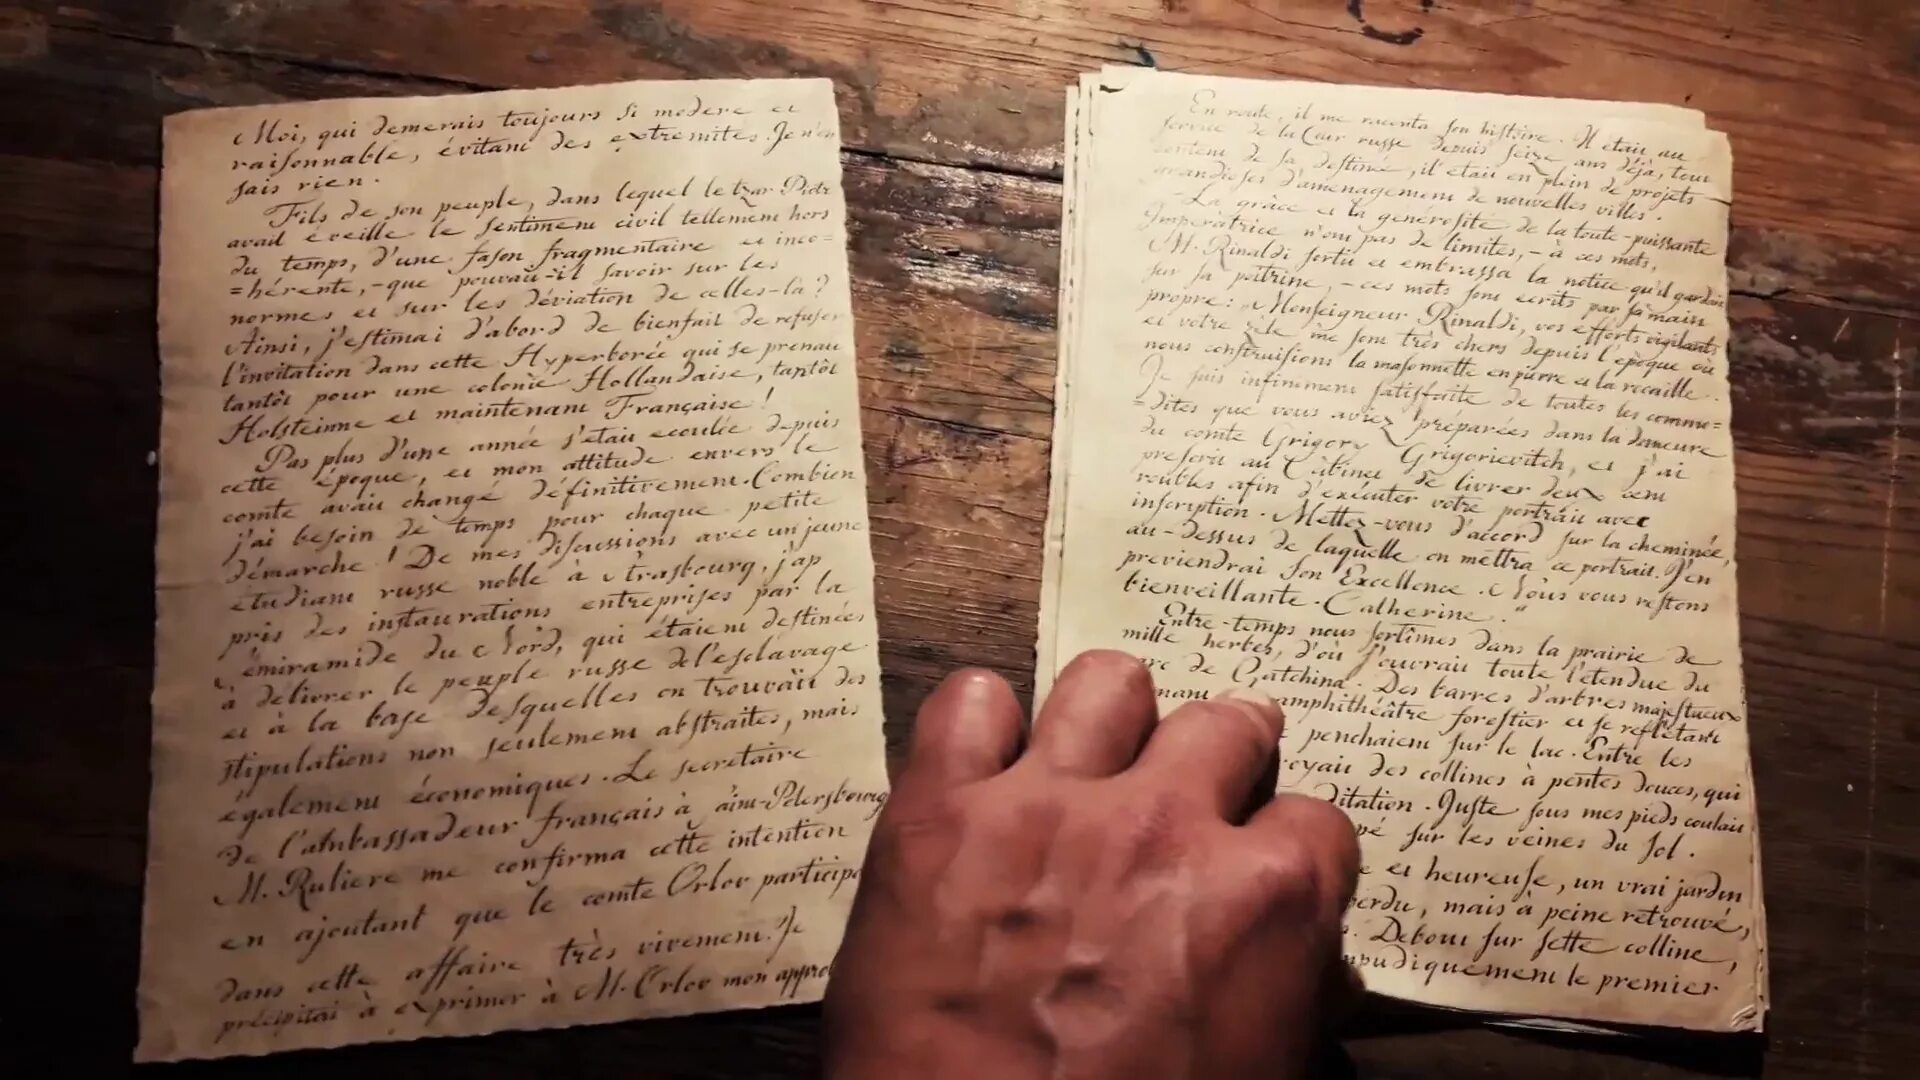 Moi, qui demerais toujours si modere et
raisonnable, évitant des extremites. Je n'en
sais rien.
Fils de son peuple, dans lequel le tzar Piotr
avait éveille le sentiment civil tellement hors
du temps, d'une fason fragmentaire et inco=
=hérente, - que pouvait-il savoir sur les
normes et sur les déviation de celles-là ?
Ainsi, j'estimai d'abord de bienfait de refuser
l'invitation dans cette Hyperborée qui se prenait
tantôt pour une colonie Hollandaise, tantôt
Holsteinne et maintenant Française !
Pas plus d'une année s'etait ecoulée depuis
cette époque, et mon attitude envers le
comte avait changé définitivement. Combien
j'ai besoin de temps pour chaque petite
démarche ! De mes discussions avec un jeune
étudiant russe noble à Strasbourg, j'ap
pris des instaurations entreprises par la
Sémiramide du Nord, qui étaient destinées
à délivrer le peuple russe de l'esclavage
et à la base desquelles on trouvait des
stipulations non seulement abstraites, mais
également économiques. Le secretaire
de l'ambassadeur français à Saint-Petersbourg
M. Ruliere me confirma cette intention
en ajoutant que le comte Orlov participa
dans cette affaire très vivement. Je
précipitai à exprimer à M. Orlov mon appro
En route, il me raconta son histoire. Il etait au
service de la Cour russe depuis seize ans déjà, tout
content de sa destinée, il etait en plein de projets
grandioses d'aménagement de nouvelles villes.
- La grâce et la générosité de la toute-puissante
Imperatrice n'ont pas de limites, - à ces mots,
M. Rinaldi sortit et embrassa la notice qu'il gardait
sur sa poitrine, - ces mots sont ecrits par sa main
propre : "Monseigneur Rinaldi, vos efforts vigilants
et votre zele me sont très chers depuis l'epoque où
nous construisions la masonnette en pierre et la rocaille.
Je suis infiniment satisfaite de toutes les commo=
=dites que vous aviez préparées dans la demeure
du comte Grigory Grigorievitch, et j'ai
prescrit au Cabinet de livrer deux cent
roubles afin d'exécuter votre portrait avec
inscription. Mettez-vous d'accord sur la cheminée,
au-dessus de laquelle on mettra ce portrait. J'en
previendrai Son Excellence. Nous vous restons
bienveillante. Catherine."
Entre-temps nous sortîmes dans la prairie de
mille herbes, d'où j'ouvrait toute l'étendue du
arc de Gatchina. Des barres d'arbres majestueux
mant amphithéâtre forestier et se reflétant
e penchaient sur le lac. Entre les
oyait des collines à pentes douces, qui
ditation. Juste sous mes pieds coulait
pé sur les veines du sol.
e et heureuse, un vrai jardin
perdu, mais à peine retrouvé,
Debout sur sette colline,
mpudiquement le premier